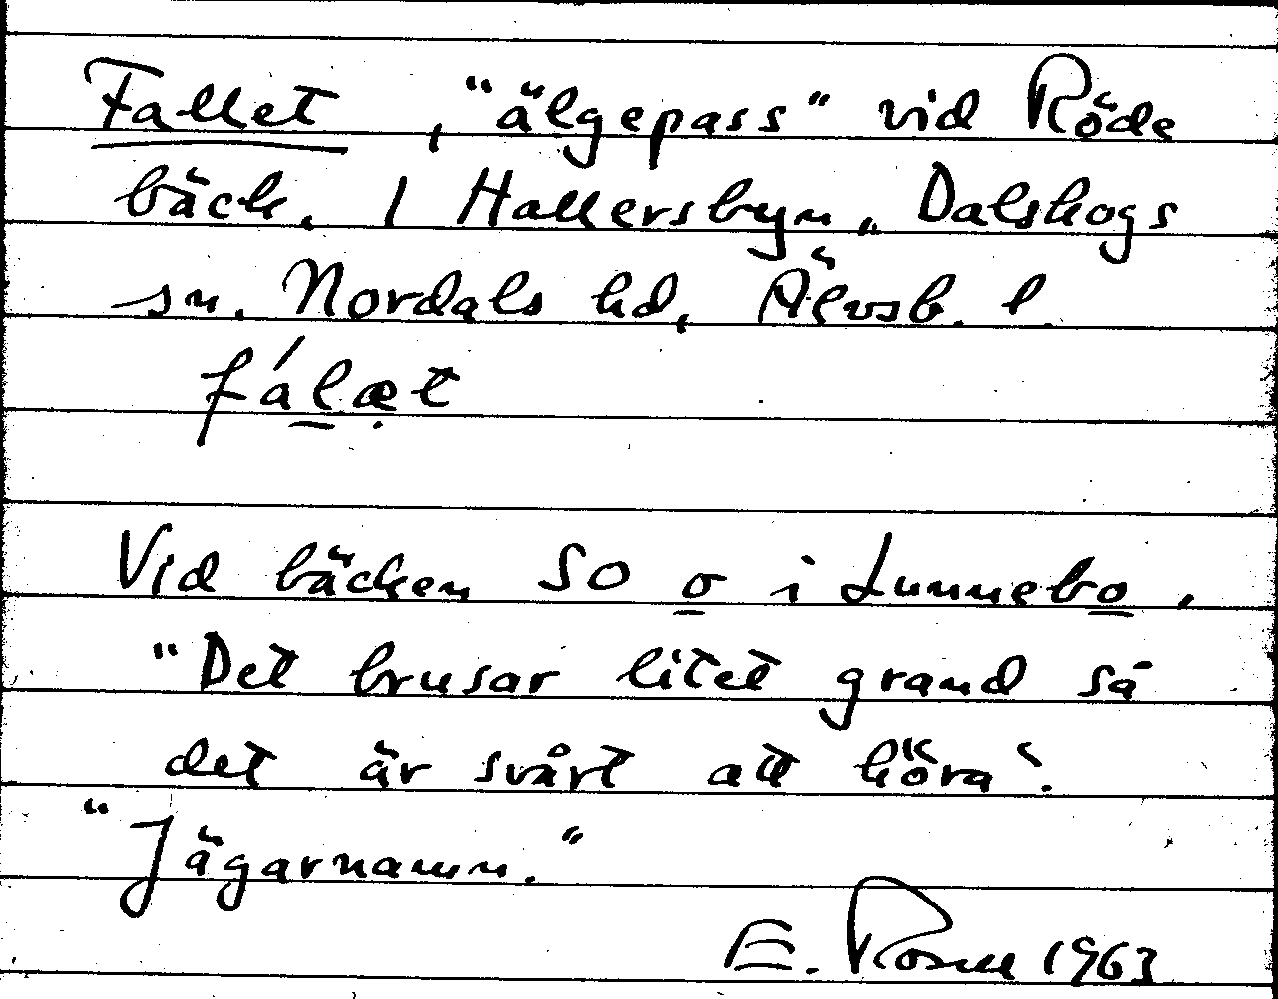 Fallet, "älgepass" vid Röde
bäck. I Hallersbyn, Dalskogs
sn. Nordals hd, Älvsb. l.
fálæ̣t
Vid bäcken SO o i Lunnebo.
"Det brusar litet grand så
det är svårt att höra".
"Jägarnamn."
E. 1963